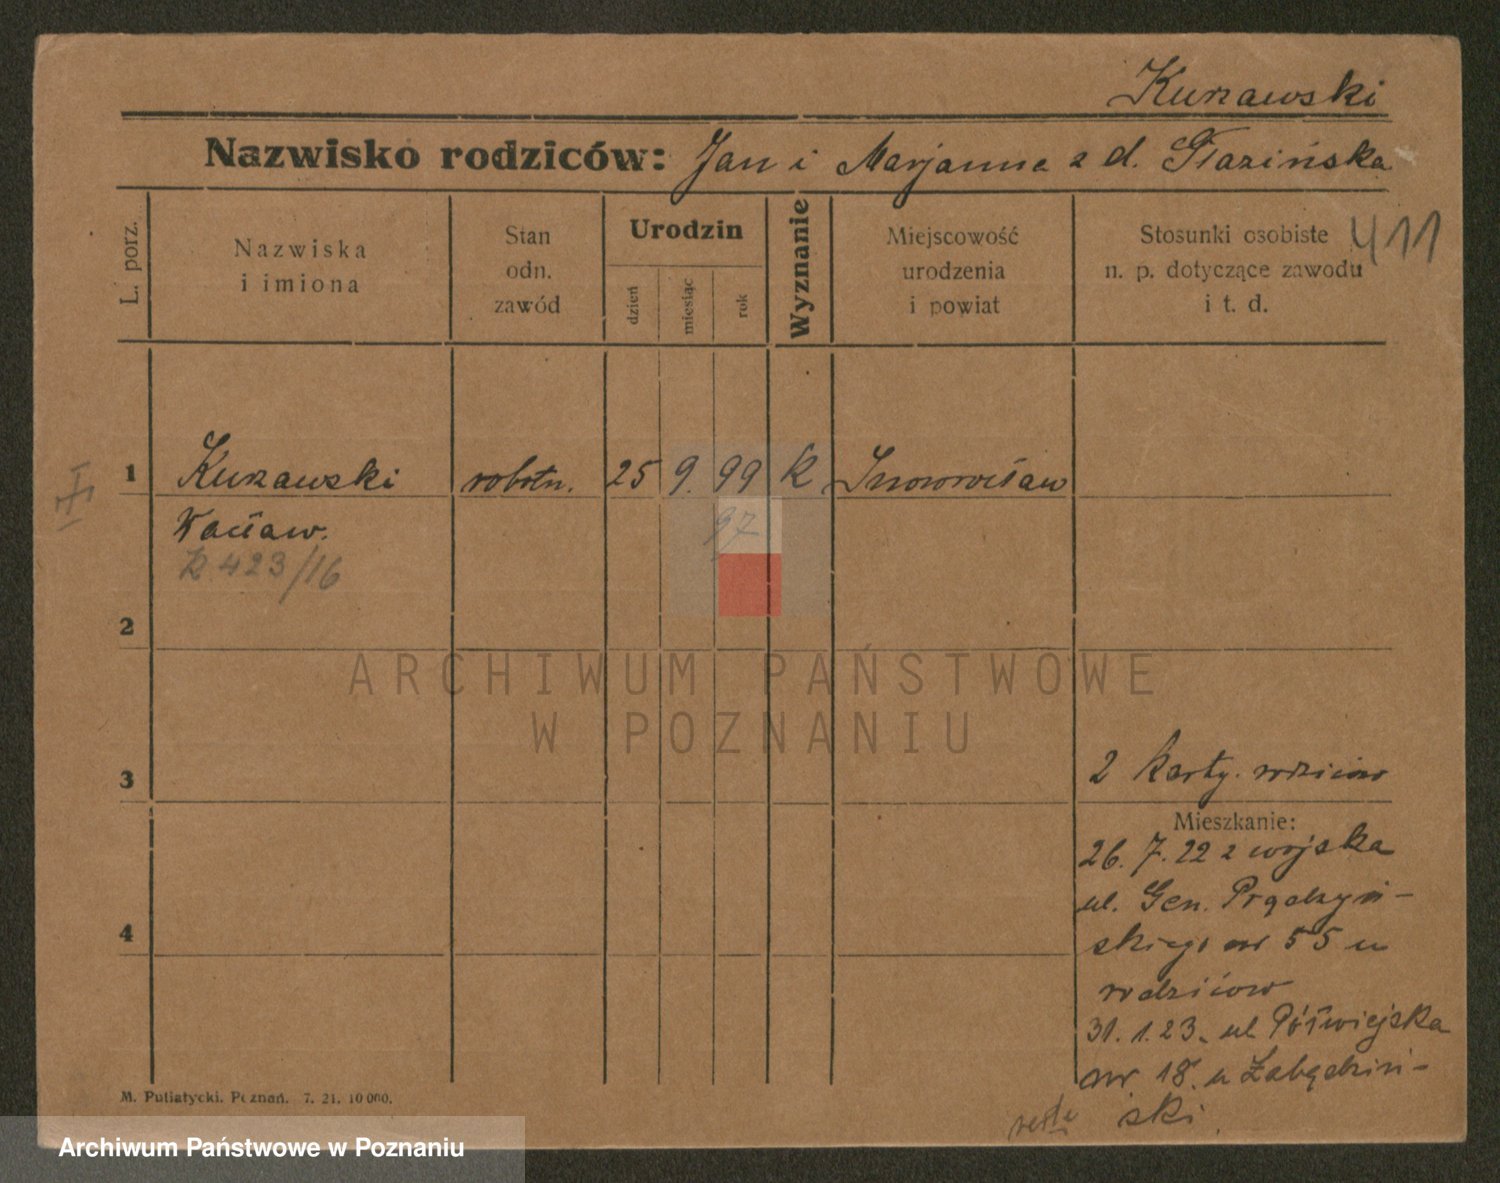 Kurzawski
Nazwisko rodziców: Jan i Marjanna z d. Głazińska
L. porz.
Nazwiska
i imiona
Stan
odn.
zawód
Urodzin
dzień
miesiąc
rok
Wyznanie
Miejscowość
urodzenia
i powiat
Stosunki osobiste
n. p. dotyczące zawodu
i t. d.
411
1 Kurzawski robotn. 25 9. 99 k Inowrocław
Wacław.
97
423/16
2
ARCHIWUM PAŃSTWOWE
W POZNANIU
3
2 karty. rodziców
Mieszkanie:
26. 7. 22 z wojska
ul. Gen. Prądzyń-
skiego nr 55 u
4
rodziców
31. 1. 23. ul Półwiejska
nr 18. u Zabądziń-
ski.
M. Putiatycki. Poznań. 7. 21. 10 000.
Archiwum Państwowe w Poznaniu